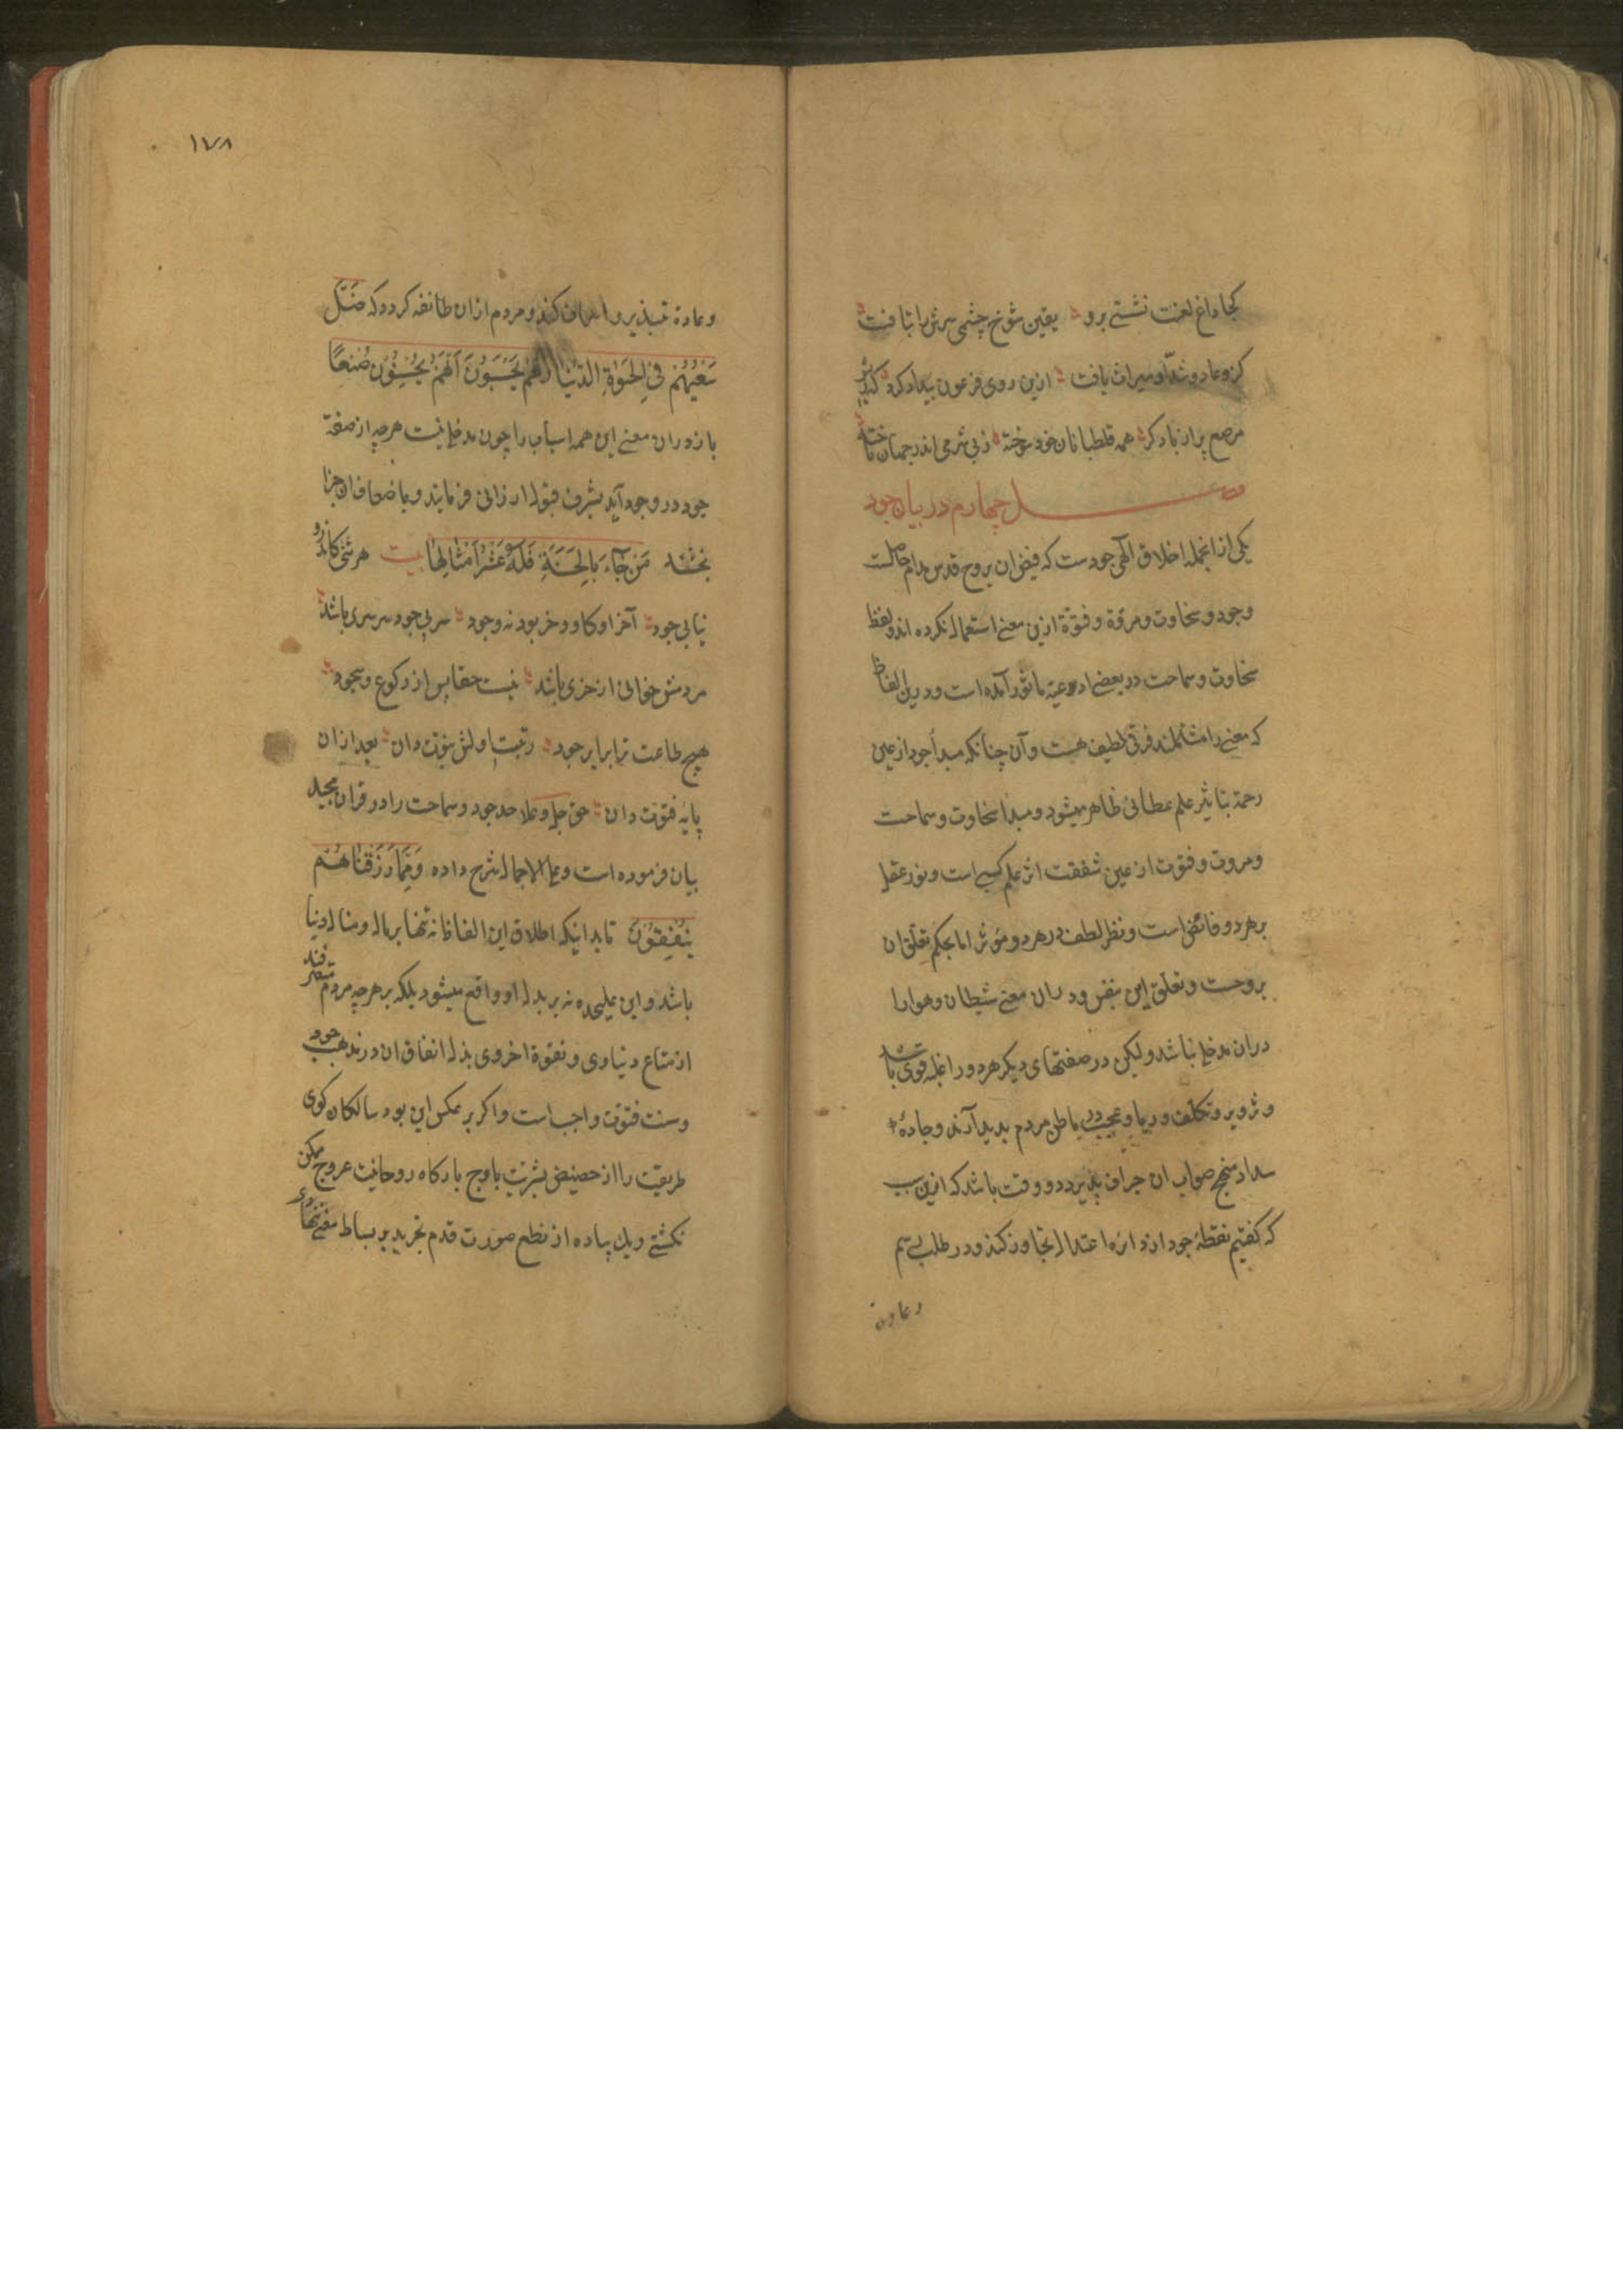 کجا داغ لعنت نشستی برو یقین شوخ چشمی سرش را بتافت
کزو عاد و شدّاد میراث یافت ازین روی فرعون بیداد کرد که
مرصع پر از باد کرد همه قلطبانان خود سوخته ز بی شرمی اندر جهان
فصل چهارم در بیان جود
یکی از انجمله اخلاق الهی جودست که فیض ان بروح قدس مدام حاصلست
وجود و سخاوت و مروّة و فتوّة ازین معنے استعمال نکرده اند و لفظ
سخاوت و سماحت در بعضے ادعیة ماثور آمده است و درین الفاظ
که معنے را مشاکلند فرقی لطیف هست و آن چنانکه مبدأ جود از عین
رحمة بتاثیر علم عطائی ظاهر میشود و مبدا سخاوت و سماحت
ومروت و فتوت از عین شفقت اثر علم کسبی است و نور عقل
بر هر دو فائض است و نظر لطف در هر دو مؤثر اما بحکم تعلق ان
بروحست و تعلق این بنفس و در ان معنے شیطان و هوا را
دران مدخل نباشد ولیکن در صفتهای دیکر هر دو را غلبه قوی باشد
و تزویر و تکلف و ریا و عجب در باطن مردم بدید آرند و جادهٔ
سداد منهج صواب ان جراف پذیرد و وقت باشد که ازین سبب
که کفتیم نقطهٔ جود از دائره اعتدال تجاوز کند و در طلب
وعادة
١٧٨
وعادة تبذیر و اسراف کند و مردم ازان طائفه کردد که ضَلَّ
سَعْیُهُمْ فِی الحَیٰوةِ الدُّنْیَا وَهُمْ یَحْسَبُونَ أَنَّهُمْ یُحْسِنُونَ صُنْعًا
باز دران معنے این همه اسباب را چون مدخل نیست هرچه از صفة
جود در وجود آید بشرف قبول ارزانی فرمایند و باضعاف ان جزا
بخشند مَنْ جَآءَ بِالحَسَنَةِ فَلَهُ عَشْرُ أَمْثَالِهَا بیت هر تنی کاندرو
نیابی جود آخر او کاو و خر بود نه وجود سر بی جود سرسری باشد
مردمش خوانی از خری باشد نیست حقا پس از رکوع و سجود
هیچ طاعت ترا برابر جود رتبت اولش نبوت دان بعد ازان
پایهٔ فتوت دان حق جل وعلا حد جود و سماحت را در قران مجید
بیان فرموده است وعلی الاجمال شرح داده وَمِمَّا رَزَقْنَاهُمْ
یُنْفِقُونَ تا بدانیکه اطلاق این الفاظ نه تنها بر مال و منال دنیا
باشد و این علیحده نه بر بذل او واقع میشود بلکه بر هرچه مردم متصرفند
از متاع دنیاوی و نقود اخروی بذل انفاق ان در مذهب جود
وسنت فتوّت واجب است و اکر بر عکس این بود سالکان کوی
طریقت را از حضیض بشریّت باوج بارکاه روحانیت عروج ممکن
نکشتی و یک پیاده از نطع صورت قدم تجرید بر بساط معنی